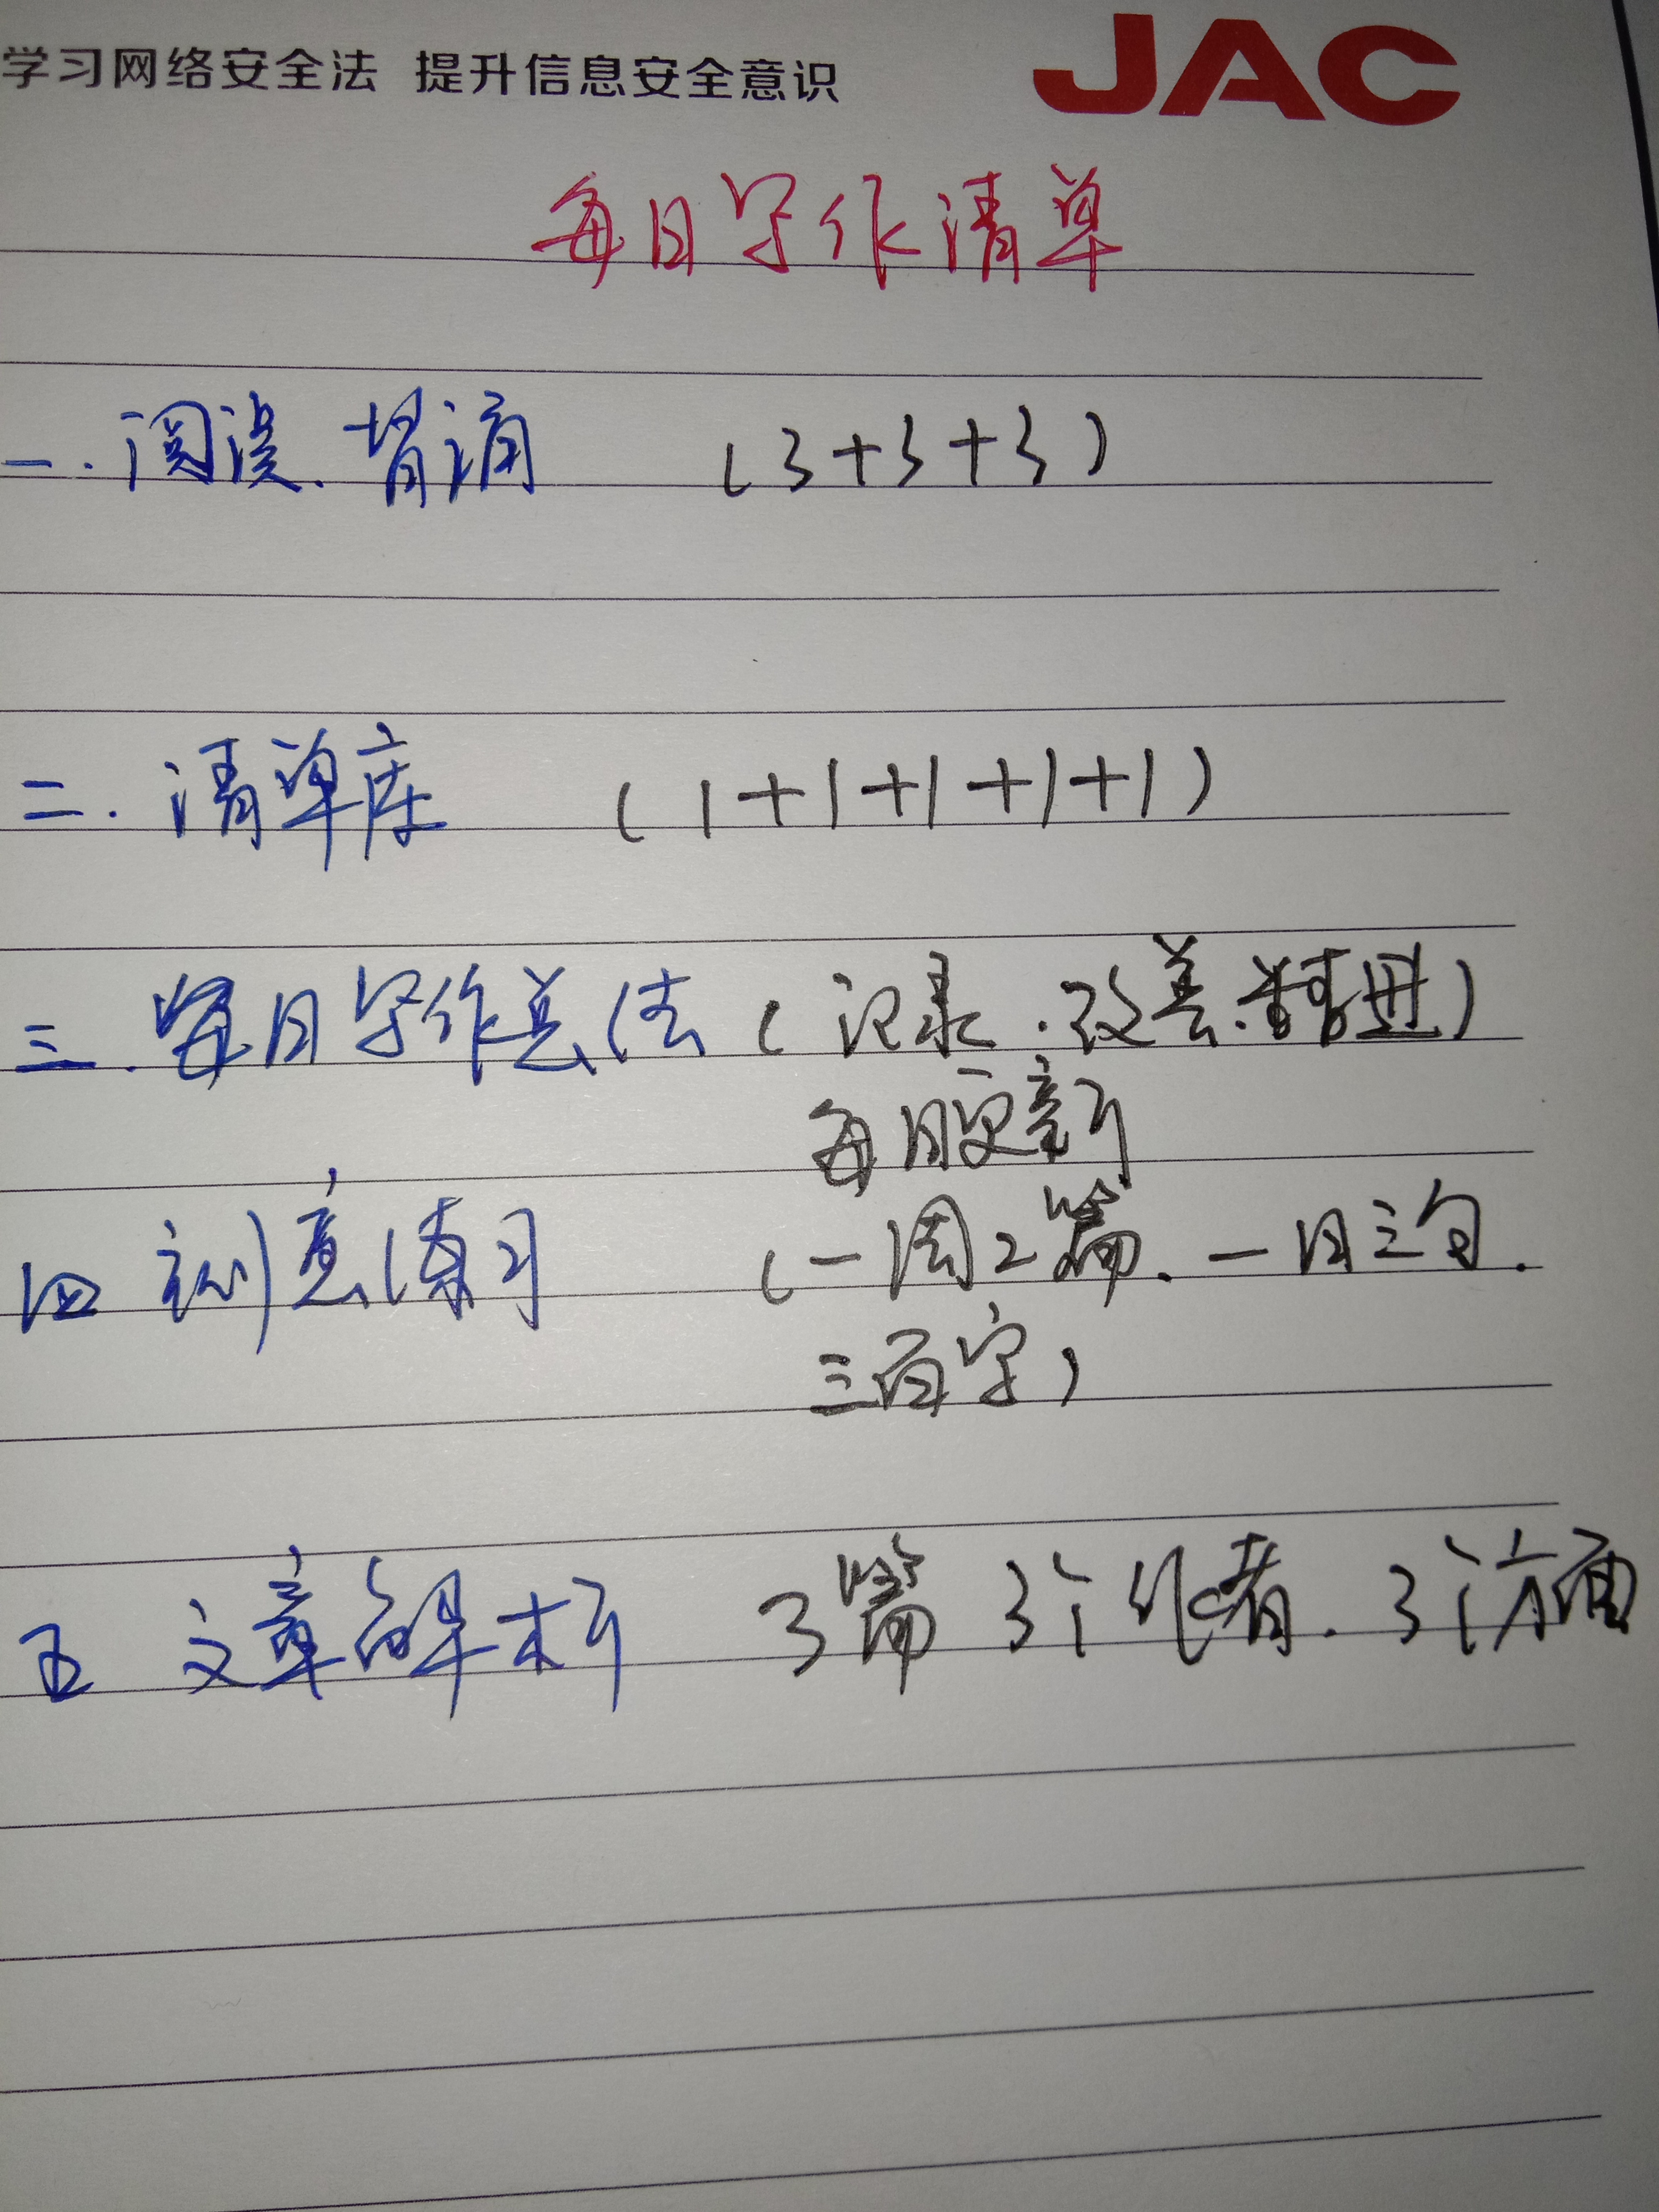 学习网络安全法 提升信息安全意识
JAC
每日写作清单
一.阅读、背诵 (3+3+3)
二.清单库 (1+1+1+1+1)
三.每日写作总结(记录.改善.精进)
每月更新
四 刻意练习 (一周2篇.一日三句.
三百字)
五 文章解析 3篇 3个作者.3个方面